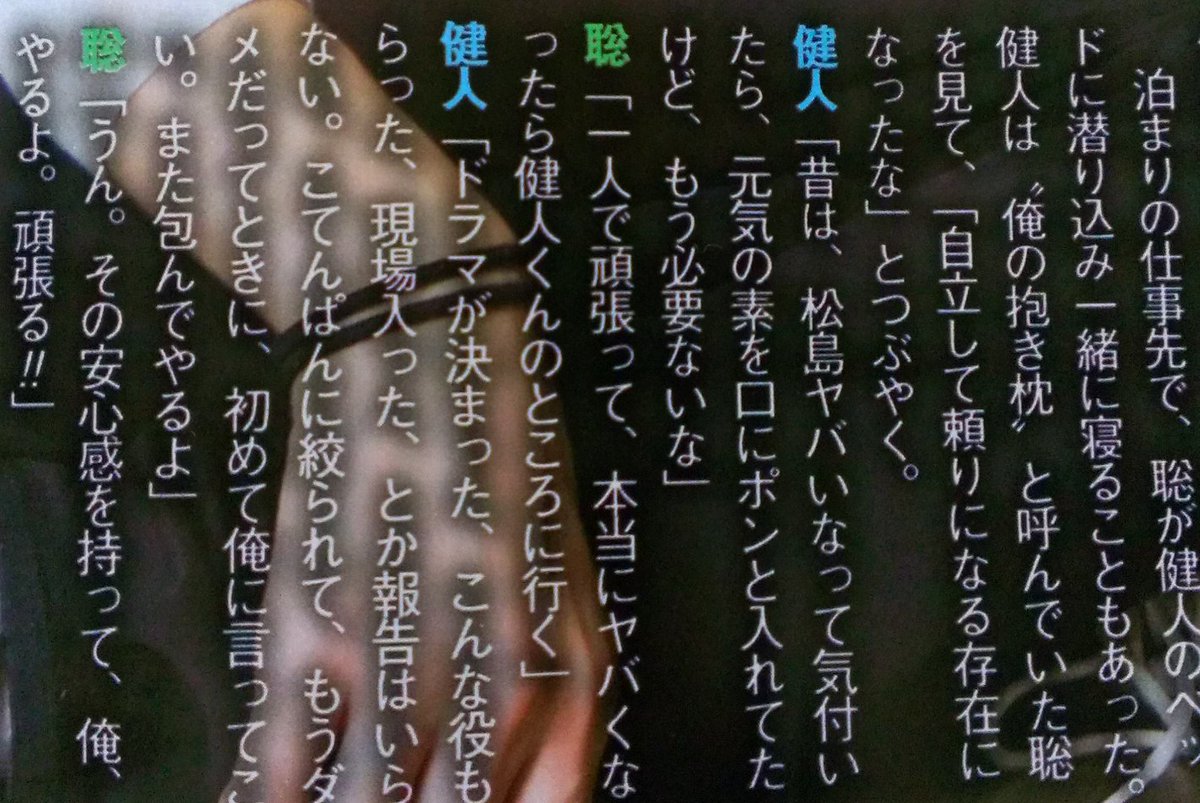 泊まりの仕事先で、聡が健人のベッ
ドに潜り込み一緒に寝ることもあった。
健人は〝俺の抱き枕〟と呼んでいた聡
を見て、「自立して頼りになる存在に
なったな」とつぶやく。
健人「昔は、松島ヤバいなって気付い
たら、元気の素を口にポンと入れてた
けど、もう必要ないな」
聡「一人で頑張って、本当にヤバくな
ったら健人くんのところに行く」
健人「ドラマが決まった、こんな役も
らった、現場入った、とか報告はいら
ない。こてんぱんに絞られて、もうダ
メだってときに、初めて俺に言ってこ
い。また包んでやるよ」
聡「うん。その安心感を持って、俺、
やるよ。頑張る!!」